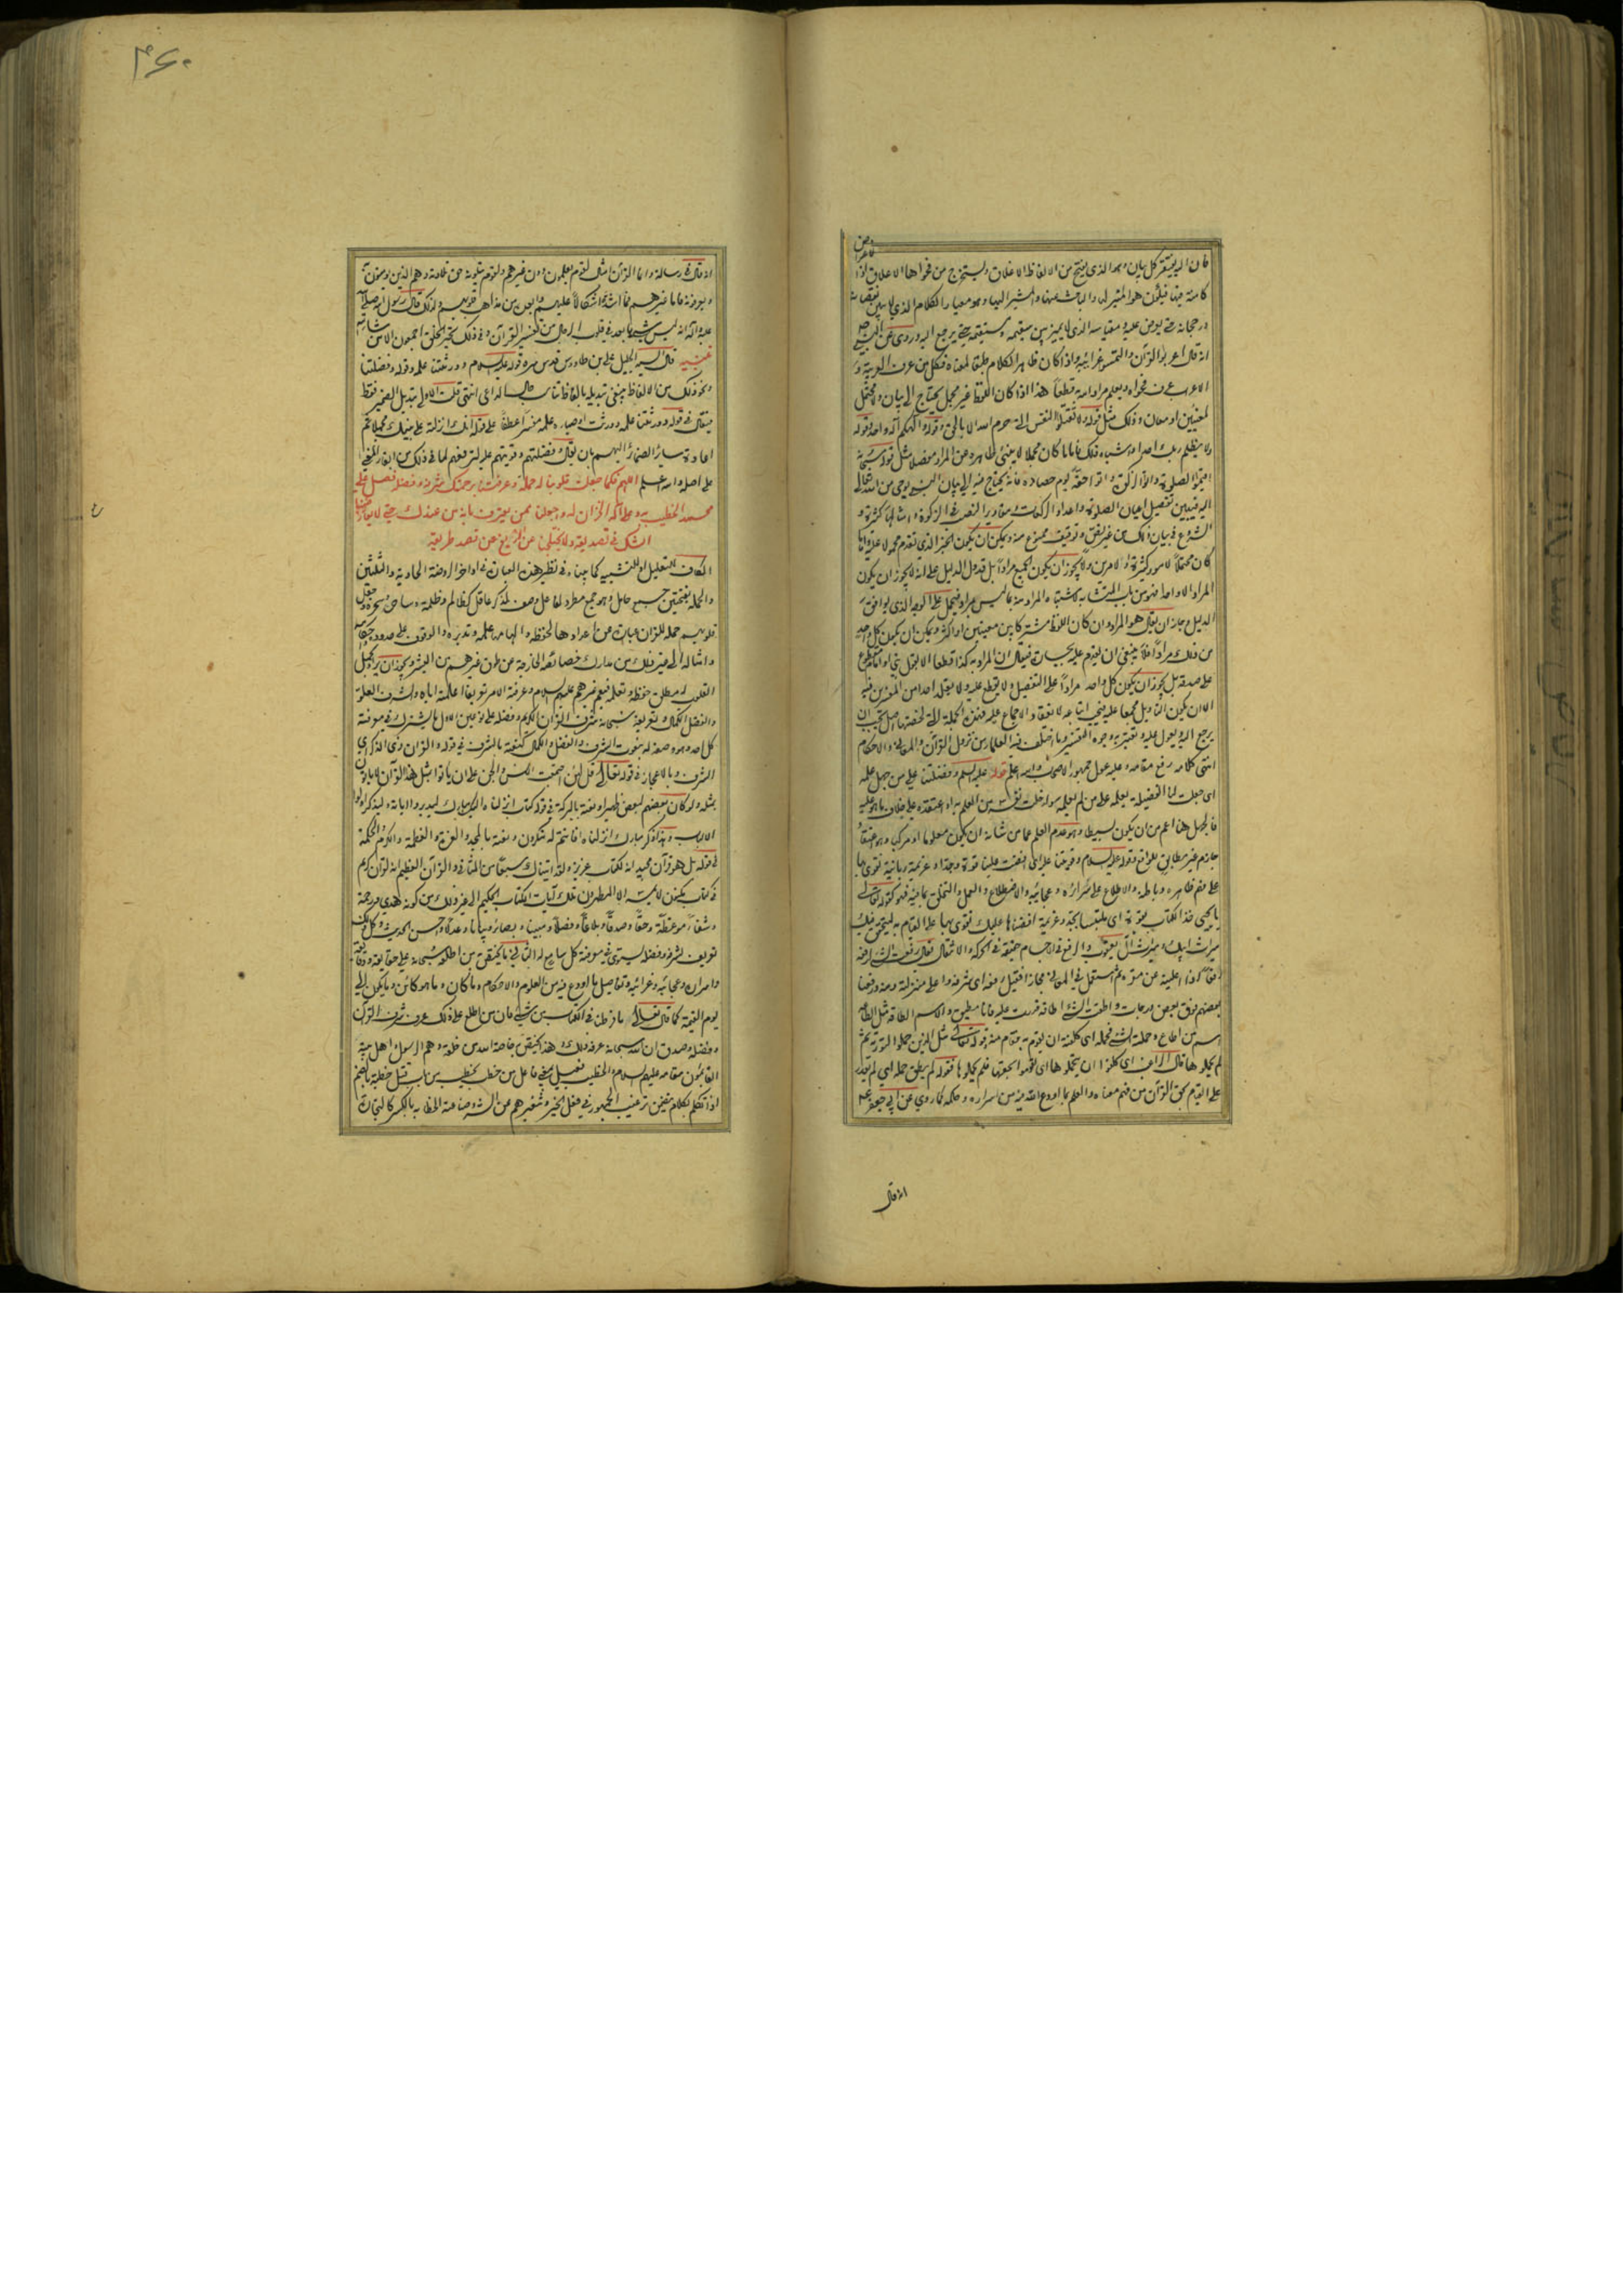 فان اليه يفتقر كل بيان وهو الذي يفتح من الالفاظ الاغلاق ويستخرج من فحواها الاعلاق
كامنة فيكون هو المثير لها والباحث عنها والمشير اليها وهو معيار الكلام الذي لا يتبين نقصانه
ورجحانه حتى يعرض عليه ومقياسه الذي لا يميز بين سقيمه ومستقيمه حتى يرجع اليه وروى عن النبي
انه قال اعربوا القرآن والتمسوا غرائبه واذا كان ظاهر الكلام طبقا لمعناه فكل من عرف العربية و
الاعراب عرف فحواه ويعلم مراد الله به قطعا هذا اذا كان اللفظ غير مجمل يحتاج الى بيان ولا محتمل
لمعنيين او معان وذلك مثل قوله ولا تقتلوا النفس التي حرم الله الا بالحق وقوله والهكم اله واحد وقوله
ولا يظلم ربك احدا واشباه ذلك فاما ما كان مجملا لا ينبئ ظاهره عن المراد مفصلا مثل قوله سبحانه
اقيموا الصلوة وآتوا الزكوة وآتوا حقه يوم حصاده فانه يحتاج فيه الى بيان النبي بوحي من الله تعالى
اليه فيبين تفصيل اعيان الصلوة واعداد الركعات ومقادير النصب في الزكوة وامثالها كثيرة و
الشروع في بيان ذلك من غير نص وتوقيف ممنوع منه ويمكن ان يكون الخبر الذي تقدم محمولا عليه واما
كان محتملا لامور كثيرة او لامرين ولا يجوز ان يكون الجميع مرادا بل قد دل الدليل على انه لا يجوز ان يكون
المراد الا واحدا فهو من باب المتشابه لاشتباه المراد منه بما ليس بمراد فيحمل على الوجه الذي يوافق
الدليل وجاز ان يقال هو المراد وان كان اللفظ مشتركا بين معنيين او اكثر ويمكن ان يكون كل واحد
من ذلك مرادا فلا ينبغي ان يقدم عليه بجسارة فيقال ان المراد به كذا قطعا الا بقول نبي او امام مقطوع
على صدقه بل يجوز ان يكون كل واحد مرادا على التفصيل ولا يقطع عليه ولا يقلد احدا من المفسرين فيه
الا ان يكون التأويل مجمعا عليه فيجب اتباعه لانعقاد الاجماع عليه فهذه الجملة التي لخصتها اصل يجب ان
يرجع اليه ويعول عليه ويعتبر به وجوه التفسير وما اختلف فيه العلماء من نزول القرآن والمعاني والاحكام
انتهى كلامه رفع مقامه وعليه عول جمهور الاصحاب والله اعلم قوله عليه السلم وفضلتنا على من جهل علمه
اي جعلت لنا الفضيلة بعلمه على من لم يعلمه سواء خلت نفسه من العلم به او اعتقده على خلاف ما هو عليه
فالجهل هنا اعم من ان يكون بسيطا وهو عدم العلم عما من شانه ان يكون معلوما او مركبا وهو اعتقاد
جازم غير مطابق للواقع وقوله عليه السلام وقويتنا عليه اي افضت علينا قوة وجدا وعزيمة ربانية نقوى بها
على فهم ظاهره وباطنه والاطلاع على اسراره وعجائبه والاضطلاع والعمل والتخلق بما فيه فهو كقوله تعالى
يا يحيى خذ الكتاب بقوة اي ملتبسا بجد وعزيمة افضناها عليك تقوى بها على القيام به ليتحقق فيك
ميراث ابيك وميراث آل يعقوب والرفع في الاجسام حقيقة في الحركة والانتقال يقال رفعت الشئ ارفعه
رفعا اذا اعليته عن مقره ثم استعمل في المعاني مجازا فقيل رفعه اي شرفه واعلى منزلته ومنه ورفعنا
بعضهم فوق بعض درجات واطقت الشئ اطاقة قدرت عليه فانا مطيق والاسم الطاقة مثل الطاعة
اسم من اطاع وحملته الشئ فحمله اي كلفته ان يقوم به فقام منه قوله تعالى مثل الذين حملوا التورية ثم
لم يحملوها قال الراغب اي كلفوا ان يتحملوها اي يقوموا بحقها فلم يحملوها فقوله لم يطق حمله اي لم يقدر
على القيام بحق القرآن من فهم معناه والعلم بما اودع الله فيه من اسراره وحكمه كما روي عن ابي جعفر
انه قال
۴۶۰
انه قال في رسالة وانما القرآن امثال لقوم يعلمون دون غيرهم ولقوم يتلونه حق تلاوته وهم الذين يؤمنون به
ويعرفونه فاما غيرهم فما اشد اشكاله عليهم وابعده من مذاهب قلوبهم ولذلك قال رسول الله صلى الله
عليه وآله انه ليس شئ بابعد من قلوب الرجال من تفسير القرآن وفي ذلك تحير الخلق اجمعون الا من شاء الله
تنبيه قال السيد الجليل علي بن طاووس قدس سره قوله عليه السلام وورثتنا علمه وقوله وفضلتنا
ونحو ذلك من الالفاظ ينبغي تبديله بالفاظ تناسب حال الداعي انتهى قلت الاولى تبديل الضمير فقط
فيقال في قوله وورثتنا علمه وورثت اوصياءه علمه مفسرا عطفا على قوله انك انزلته على نبيك مجملا ثم
اعادة سائر الضمائر اليهم بان يقال وفضلتهم وقويتهم عليه لترفعهم لما في ذلك من ابقاء المعنى
على اصله والله اعلم اللهم فكما جعلت قلوبنا له حملة وعرفتنا برحمتك شرفه وفضله فصل على
محمد الخطيب به وعلى آله الخزان له واجعلنا ممن يعترف بانه من عندك حتى لا يعارضنا
الشك في تصديقه ولا يختلجنا الزيغ عن قصد طريقه
الكاف للتعليل او للتشبيه كما بيناه في نظير هذه العبارة في اواخر الروضة الحادية والثلثين
والحملة بفتحتين جمع حامل وهو جمع مطرد لفاعل وصف لمذكر عاقل كظالم وظلمة وساحر وسحرة وجعل
قلوبهم حملة للقرآن عبارة عن اعدادها لحفظه والهامها علمه وتدبره والوقوف على حدوده واحكامه
وامثاله الى غير ذلك من مدارك خصائصه الخارجة عن طوق غيرهم من البشر ويجوز ان يراد بحمل
القلوب له مطلق حفظه وتعلمه فيعم غيرهم عليهم السلام وعرفه الامر تعريفا اعلمه اياه والشرف العلو
والفضل الكمال وتعريفه سبحانه شرف القرآن الكريم وفضله على نوعين الاول ما يشترك في معرفته
كل احد وهو وصفه له بنعوت الشرف والفضل والكمال كنعته بالشرف في قوله والقرآن ذي الذكر اي
الشرف وبالاعجاز في قوله تعالى قل لئن اجتمعت الانس والجن على ان يأتوا بمثل هذا القرآن لا يأتون
بمثله ولو كان بعضهم لبعض ظهيرا ونعته بالبركة في قوله كتاب انزلناه اليك مبارك ليدبروا آياته وليذكر اولوا
الالباب وهذا ذكر مبارك انزلناه افانتم له منكرون ونعته بالمجد والعزة والعظمة والكرم والحكمة
في قوله بل هو قرآن مجيد انه لكتاب عزيز ولقد آتيناك سبعا من المثاني والقرآن العظيم انه لقرآن كريم
في كتاب مكنون لا يمسه الا المطهرون تلك آيات الكتاب الحكيم الى غير ذلك من كونه هدى ورحمة
وشفاء وموعظة وحقا وصدقا وبلاغا وفصلا ومبينا وبصائر وبيانا وعدلا واحسن الحديث وكل ذلك
تعريف لشرفه وفضله يستوي في معرفته كل سامع له الثاني ما يختص به من اطلعه سبحانه على حقائقه ودقائقه
واسراره وعجائبه وغرائبه وتفاصيل ما اودع فيه من العلوم والاحكام وما كان وما هو كائن وما يكون الى
يوم القيمة كما قال تعالى ما فرطنا في الكتاب من شئ فان من اطلع على ذلك عرف شرف القرآن
وفضله وصدق ان الله سبحانه عرفه ذلك وهذا يختص بخاصة الله من خلقه وهم الرسول واهل بيته
القائمون مقامه عليهم السلام والخطيب فعيل بمعنى فاعل من خطب يخطب من باب قتل خطبة بالضم
اذا تكلم بكلام يتضمن ترغيب الجمهور في فعل الخير وتنفيرهم عن الشر وصناعته الخطابة بالكسر كالتجارة